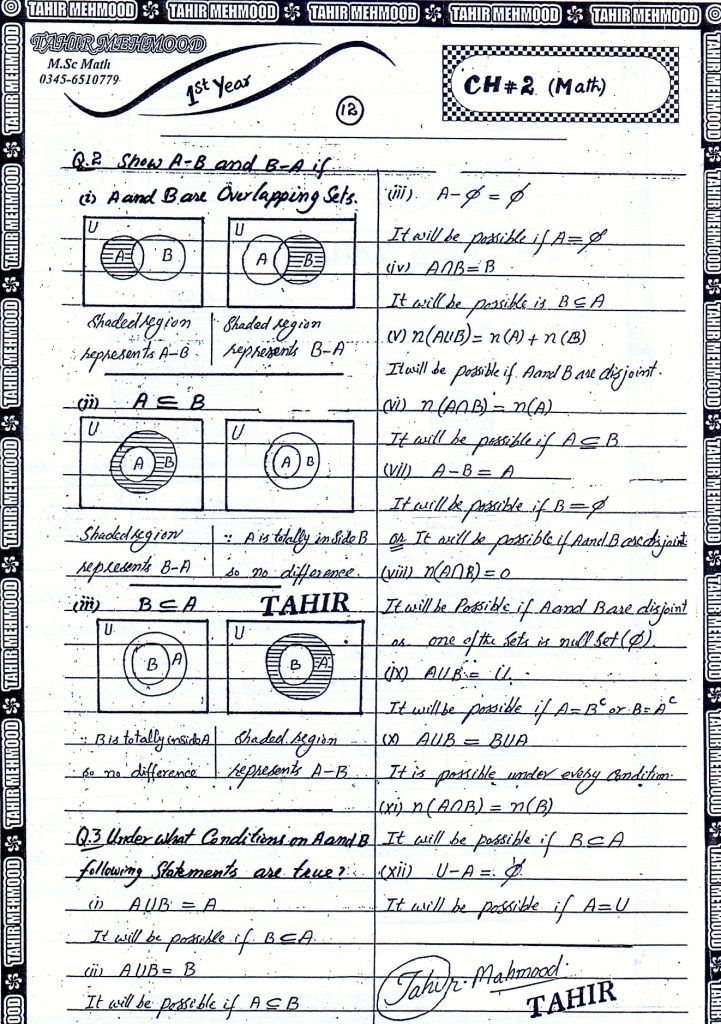 TAHIR MEHMOOD TAHIR MEHMOOD TAHIR MEHMOOD TAHIR MEHMOOD TAHIR MEHMOOD
TAHIR MEHMOOD
M.Sc Math
0345-6510779
1st Year
12
CH#2 (Math)
Q.2 Show A-B and B-A if
(i) A and B are Overlapping Sets.
U A B
U A B
Shaded region
represents A-B
Shaded region
represents B-A
(ii) A ⊆ B
U A B
U A B
Shaded region
represents B-A
∵ A is totally inside B
so no difference.
(iii) B ⊆ A
TAHIR
U B A
U B A
∵ B is totally inside A
so no difference
Shaded region
represents A-B
Q.3 Under what Conditions on A and B
following Statements are true?
(i) A∪B = A
It will be possible if B⊆A
(ii) A∪B = B
It will be possible if A⊆B
(iii) A-ϕ = ϕ
It will be possible if A=ϕ
(iv) A∩B=B
It will be possible is B⊆A
(v) n(A∪B) = n(A) + n(B)
It will be possible if A and B are disjoint.
(vi) n(A∩B) = n(A)
It will be possible if A⊆B
(vii) A-B = A
It will be possible if B=ϕ
or It will be possible if A and B are disjoint
(viii) n(A∩B)=0
It will be Possible if A and B are disjoint
or one of the sets is null set (ϕ).
(ix) A∪B = U.
It will be possible if A=Bᶜ or B=Aᶜ
(x) A∪B = B∪A
It is possible under every condition.
(xi) n(A∩B) = n(B)
It will be possible if B⊆A
(xii) U-A = ϕ
It will be possible if A=U
Tahir Mahmood.
TAHIR
TAHIR MEHMOOD TAHIR MEHMOOD TAHIR MEHMOOD TAHIR MEHMOOD TAHIR MEHMOOD TAHIR MEHMOOD TAHIR MEHMOOD
TAHIR MEHMOOD TAHIR MEHMOOD TAHIR MEHMOOD TAHIR MEHMOOD TAHIR MEHMOOD TAHIR MEHMOOD TAHIR MEHMOOD